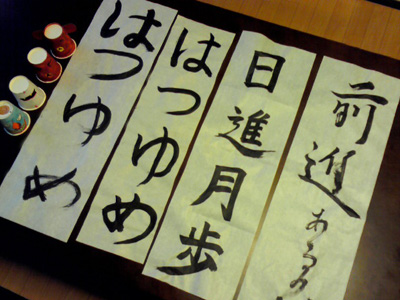 前進あるの
日進月歩
はつゆめ
はつゆめ